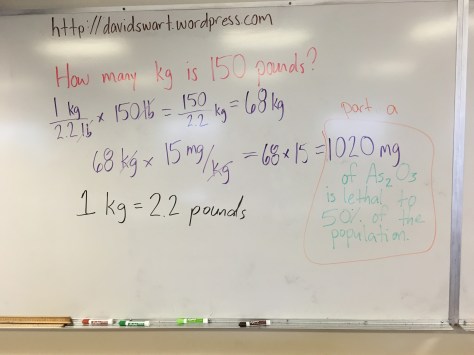 http://davidswart.wordpress.com
How many kg is 150 pounds?
1 kg/2.2 lb × 150 lb = 150/2.2 kg = 68 kg
part a
68 kg × 15 mg/kg = 68 × 15 = 1020 mg
of As₂O₃
is lethal to
50% of the
population.
1 kg = 2.2 pounds